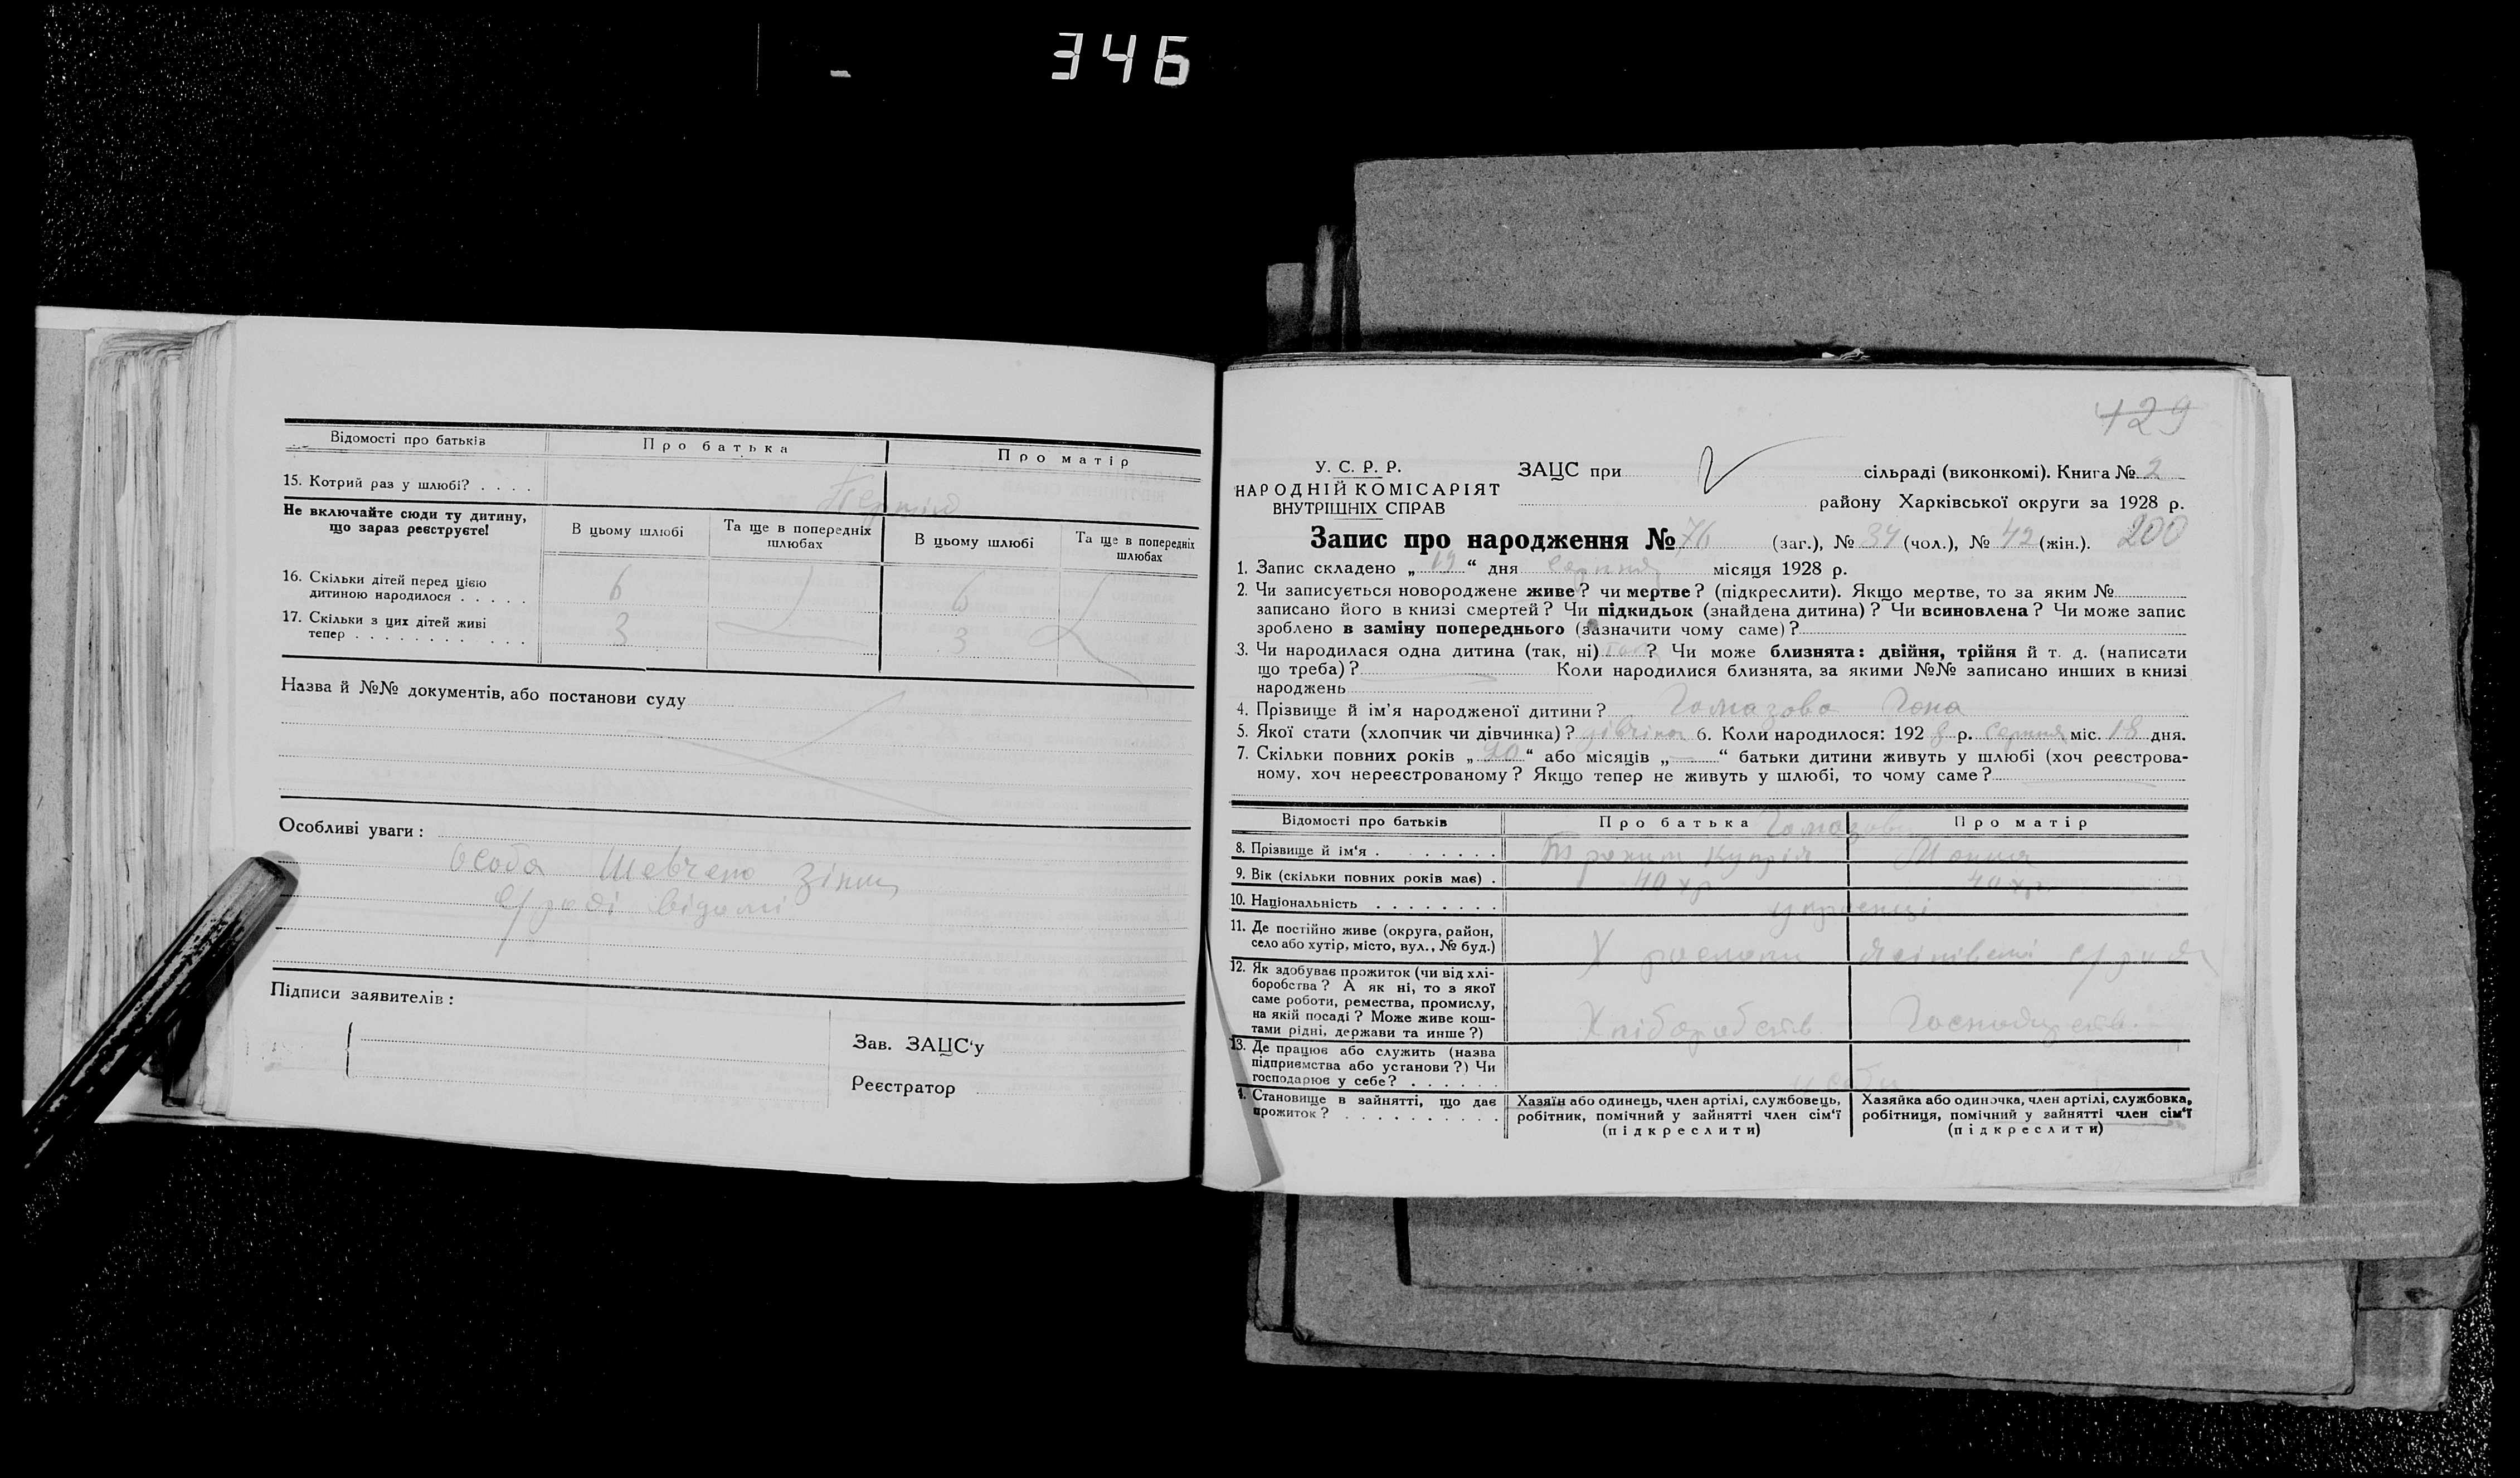 346
Відомості про батьків
Про батька
Про матір
15. Котрий раз у шлюбі? . . . .
Не включайте сюди ту дитину,
що зараз реєструєте!
В цьому шлюбі
Та ще в попередніх
шлюбах
В цьому шлюбі
Та ще в попередніх
шлюбах
16. Скільки дітей перед цією
дитиною народилося . . . . . 6 6
17. Скільки з цих дітей живі
тепер . . . . . . . . . . . 3 3
Назва й №№ документів, або постанови суду
Особливі уваги :
Особа Шевченко
с/раді відомі
Підписи заявителів :
Зав. ЗАЦС'у
Реєстратор
429
У. С. Р. Р.
НАРОДНІЙ КОМІСАРІЯТ
ВНУТРІШНІХ СПРАВ
ЗАЦС при сільраді (виконкомі). Книга № 2
району Харківської округи за 1928 р.
Запис про народження № 76 (заг.), № 34 (чол.), № 42 (жін.). 200
1. Запис складено „ 19 “ дня серпня місяця 1928 р.
2. Чи записується новороджене живе? чи мертве? (підкреслити). Якщо мертве, то за яким №
записано його в книзі смертей? Чи підкидьок (знайдена дитина)? Чи всиновлена? Чи може запис
зроблено в заміну попереднього (зазначити чому саме)?
3. Чи народилася одна дитина (так, ні) ? Чи може близнята: двійня, трійня й т. д. (написати
що треба)? Коли народилися близнята, за якими №№ записано инших в книзі
народжень
4. Прізвище й ім'я народженої дитини?
5. Якої стати (хлопчик чи дівчинка)? дівчина 6. Коли народилося: 192 8 р. серпня міс. 18 дня.
7. Скільки повних років „ 20 “ або місяців „ “ батьки дитини живуть у шлюбі (хоч реєстрова-
ному, хоч нереєстрованому? Якщо тепер не живуть у шлюбі, то чому саме?
Відомості про батьків
Про батька
Про матір
8. Прізвище й ім'я . . . . . . .
9. Вік (скільки повних років має) . 40 40
10. Національність . . . . . . . .
11. Де постійно живе (округа, район,
село або хутір, місто, вул., № буд.)
12. Як здобуває прожиток (чи від хлі-
боробства? А як ні, то з якої
саме роботи, ремества, промислу,
на якій посаді? Може живе кош-
тами рідні, держави та инше?)
Хліборобств.
Господарств.
13. Де працює або служить (назва
підприємства або установи?) Чи
господарює у себе? . . . . . .
у себе
4. Становище в зайнятті, що дає
прожиток? . . . . . . . . . .
Хазяїн або одинець, член артілі, службовець,
робітник, помічний у зайнятті член сім'ї
(підкреслити)
Хазяйка або одиночка, член артілі, службовка,
робітниця, помічний у зайнятті член сім'ї
(підкреслити)